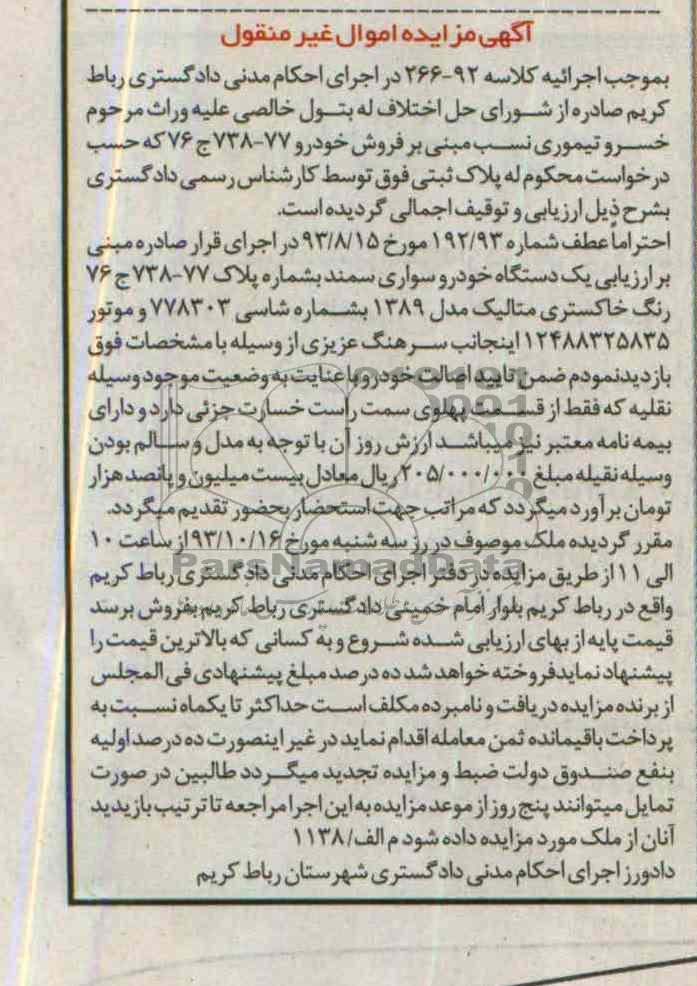 آگهی مزایده اموال غیر منقول
بموجب اجرائیه کلاسه ۹۲-۲۶۶ در اجرای احکام مدنی دادگستری رباط
کریم صادره از شورای حل اختلاف له بتول خالصی علیه وراث مرحوم
خسرو تیموری نسب مبنی بر فروش خودرو ۷۷-۷۳۸ج۷۶ که حسب
درخواست محکوم له پلاک ثبتی فوق توسط کارشناس رسمی دادگستری
بشرح ذیل ارزیابی و توقیف اجمالی گردیده است.
احتراماً عطف شماره ۱۹۲/۹۳ مورخ ۹۳/۸/۱۵ در اجرای قرار صادره مبنی
بر ارزیابی یک دستگاه خودرو سواری سمند بشماره پلاک ۷۷-۷۳۸ج۷۶
رنگ خاکستری متالیک مدل ۱۳۸۹ بشماره شاسی ۷۷۸۳۰۳ و موتور
۱۲۴۸۸۳۲۵۸۳۵ اینجانب سرهنگ عزیزی از وسیله با مشخصات فوق
بازدید نمودم ضمن تایید اصالت خودرو با عنایت به وضعیت موجود وسیله
نقلیه که فقط از قسمت پهلوی سمت راست خسارت جزئی دارد و دارای
بیمه نامه معتبر نیز میباشد ارزش روز آن با توجه به مدل و سالم بودن
وسیله نقیله مبلغ ۲۰۵/۰۰۰/۰۰۰ ریال معادل بیست میلیون و پانصد هزار
تومان برآورد میگردد که مراتب جهت استحضار بحضور تقدیم میگردد.
مقرر گردیده ملک موصوف در رز سه شنبه مورخ ۹۳/۱۰/۱۶ از ساعت ۱۰
الی ۱۱ از طریق مزایده در دفتر اجرای احکام مدنی دادگستری رباط کریم
ParsNamadData
واقع در رباط کریم بلوار امام خمینی دادگستری رباط کریم بفروش برسد
قیمت پایه از بهای ارزیابی شده شروع و به کسانی که بالاترین قیمت را
پیشنهاد نماید فروخته خواهد شد ده درصد مبلغ پیشنهادی فی المجلس
از برنده مزایده دریافت و نامبرده مکلف است حداکثر تا یکماه نسبت به
پرداخت باقیمانده ثمن معامله اقدام نماید در غیر اینصورت ده درصد اولیه
بنفع صندوق دولت ضبط و مزایده تجدید میگردد طالبین در صورت
تمایل میتوانند پنج روز از موعد مزایده به این اجرا مراجعه تا ترتیب بازیدید
آنان از ملک مورد مزایده داده شود م الف/۱۱۳۸
دادورز اجرای احکام مدنی دادگستری شهرستان رباط کریم